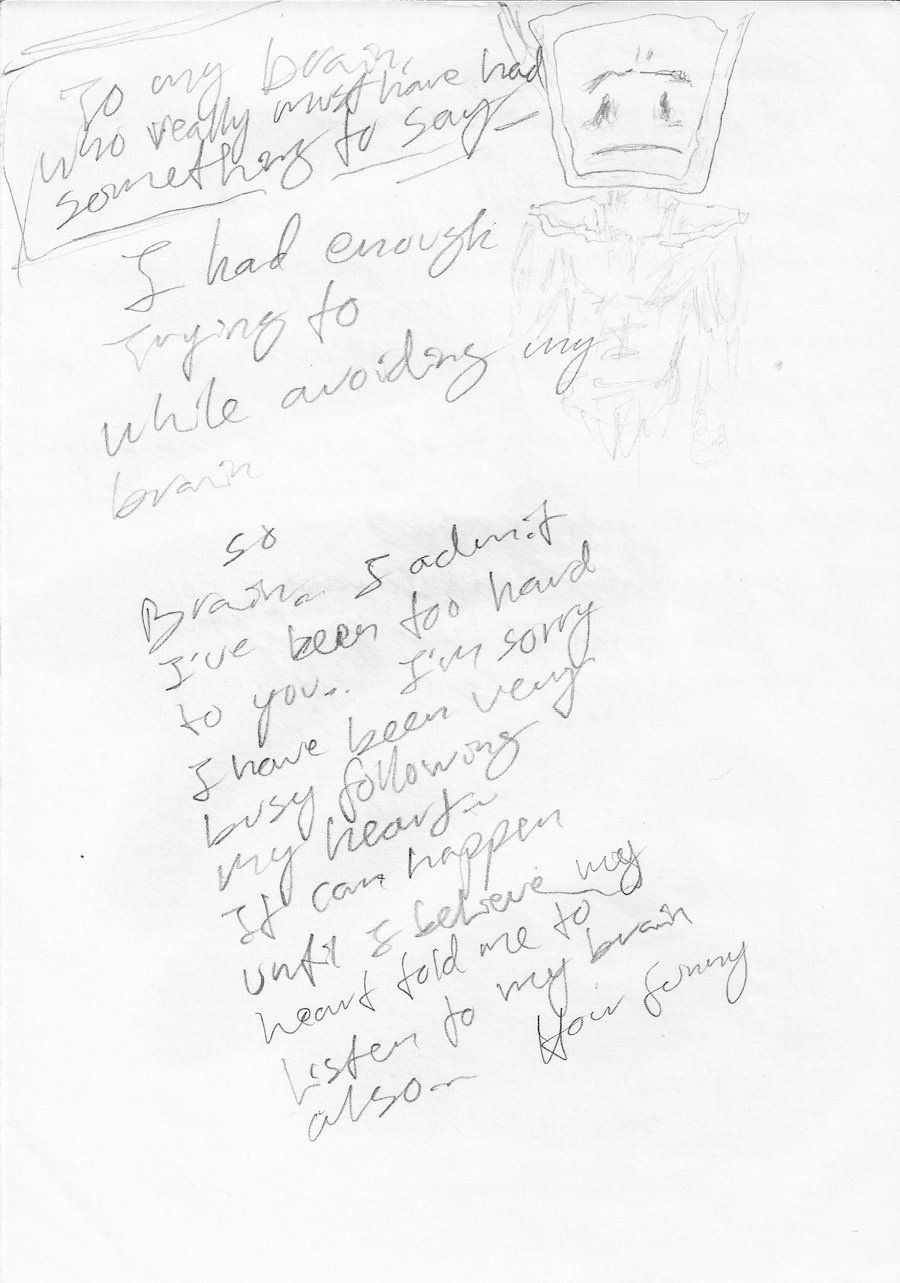 To my brain,
who really must have had
something to say –
I had enough
Trying to
while avoiding my
brain
so
Brain.. I admit
I've been too hard
to you... I'm sorry
I have been very
busy following
my heart..
It can happen
until I believe my
heart told me to
Listen to my brain
also.. How funny